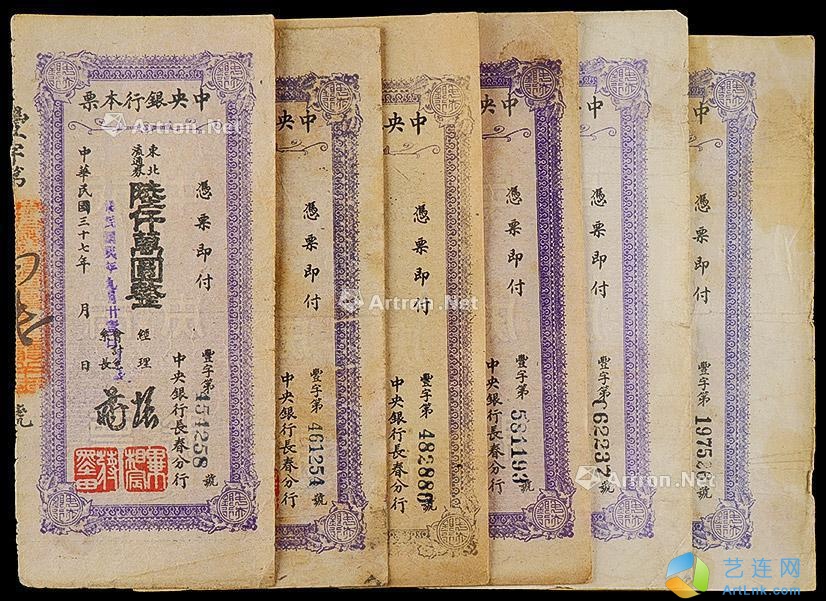 中央銀行本票
憑票即付
豐字第454258號
中央銀行長春分行
東北
流通券
陸仟萬圓整
經理
會計
中華民國三十七年 月 日
豐字第
號
中央
憑票即付
豐字第461254號
中央銀行長春分行
中央
憑票即付
豐字第482880號
中央銀行長春分行
中央
憑票即付
豐字第531193號
中央銀行長春分行
中
憑票即付
豐字第162237號
憑票即付
豐字第197526號
Artron.Net
Artron.Net
Artron.Net
Artron.Net
Artron.Net
艺连网
ArtLnk.com